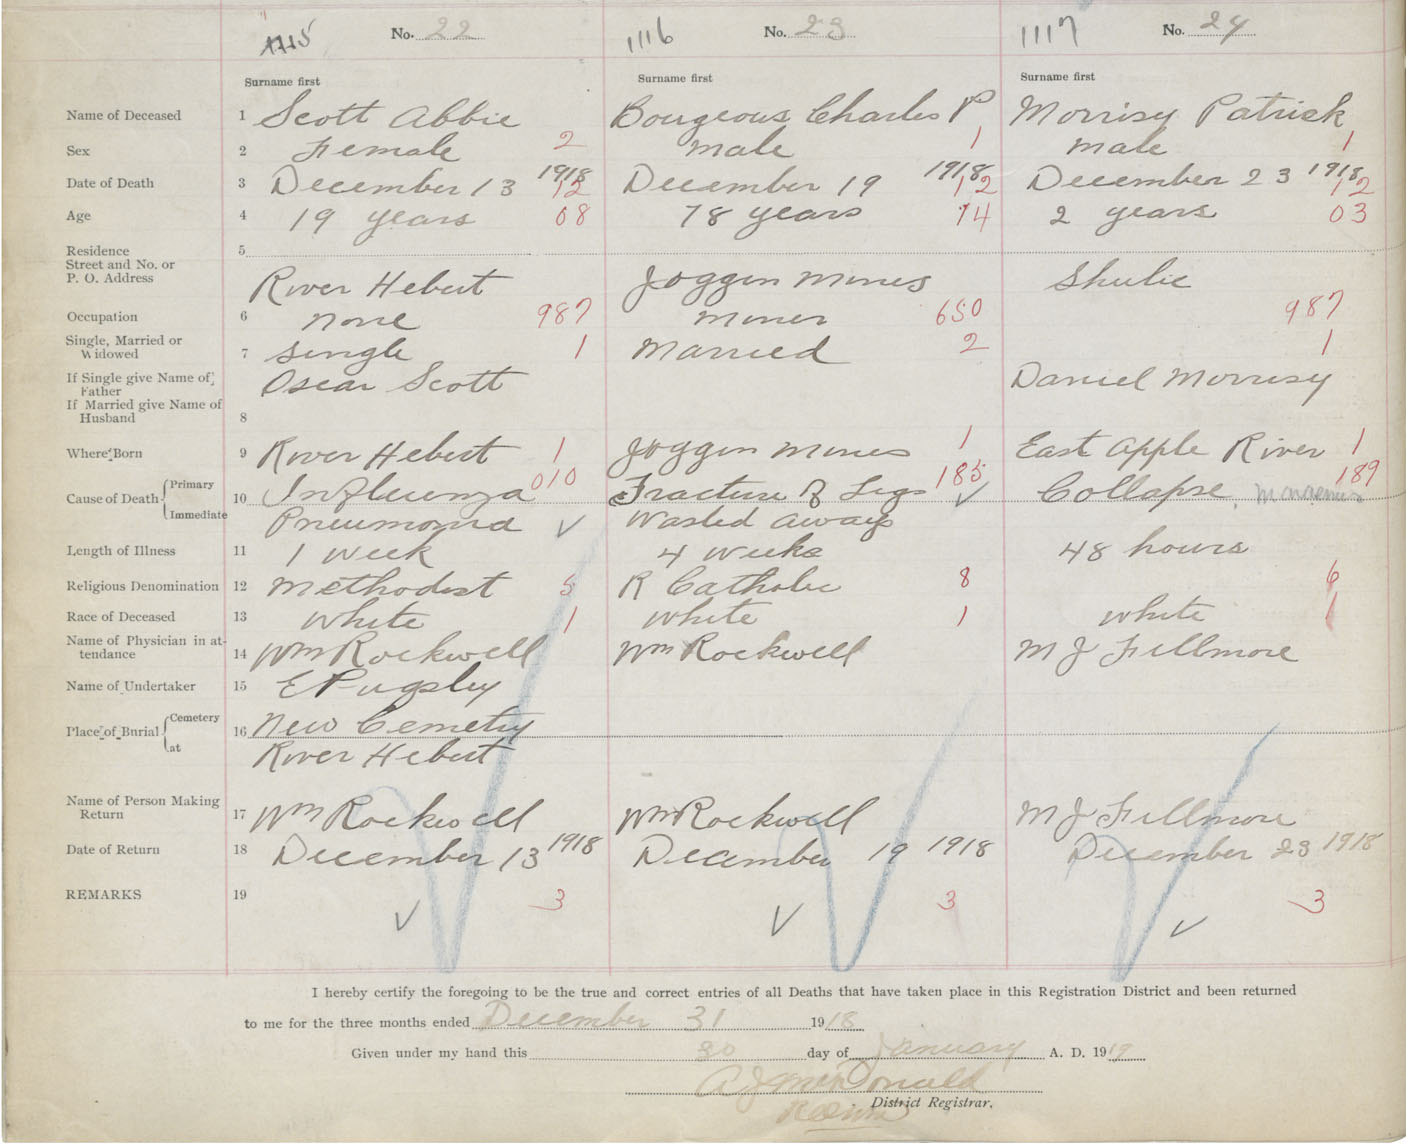 1115 No. 22 1116 No. 23 1117 No. 24
Surname first Surname first Surname first
Name of Deceased 1 Scott Abbie Bourgeous Charles P Morrisy Patrick
Sex 2 Female 2 Male 1 Male 1
Date of Death 3 December 13 1918 12 December 19 1918 12 December 23 1918 12
Age 4 19 years 08 78 years 14 2 years 03
Residence 5
Street and No. or
P. O. Address River Hebert Joggin Mines Shulie
Occupation 6 None 987 Miner 650 987
Single, Married or
Widowed 7 Single 1 Married 2 1
If Single give Name of
Father Oscar Scott Daniel Morrisy
If Married give Name of
Husband 8
Where Born 9 River Hebert 1 Joggin Mines 1 East Apple River 1
Cause of Death Primary 10 Influenza 010 Fracture of Legs 185 Collapse 189
Immediate Pneumonia Wasted away
Length of Illness 11 1 Week 4 Weeks 48 hours
Religious Denomination 12 Methodist 5 R Catholic 8 6
Race of Deceased 13 White 1 White 1 White 1
Name of Physician in at-
tendance 14 Wm Rockwell Wm Rockwell M J Fillmore
Name of Undertaker 15 E Pugsley
Place of Burial Cemetery 16 New Cemetry
at River Hebert
Name of Person Making
Return 17 Wm Rockwell Wm Rockwell M J Fillmore
Date of Return 18 December 13 1918 December 19 1918 December 23 1918
REMARKS 19 3 3 3
I hereby certify the foregoing to be the true and correct entries of all Deaths that have taken place in this Registration District and been returned
to me for the three months ended December 31 1918
Given under my hand this 30 day of January A. D. 1919
McDonald
District Registrar.